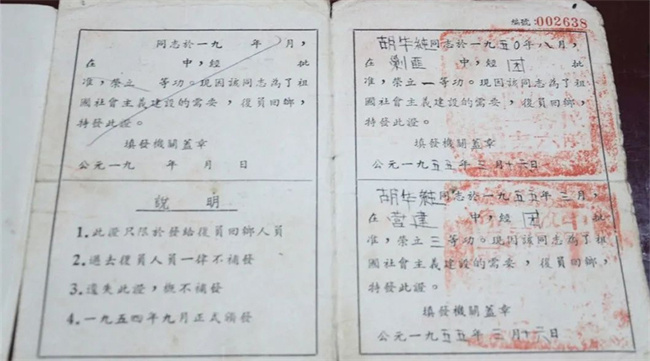 同志於一九 年 月，
在 中，經 批
准，榮立 等功。現因該同志為了祖
國社會主义建設的需要，復員回鄉，
特發此證。
填發機關蓋章
公元一九 年 月 日
說 明
1.此證只限於發給復員回鄉人員
2.過去復員人員一律不補發
3.遺失此證，概不補發
4.一九五四年九月正式頒發
編號：002638
胡牛純同志於一九五〇年八月，
在剿匪中，經团批
准，榮立一等功。現因該同志為了祖
國社會主义建設的需要，復員回鄉，
特發此證。
填發機關蓋章
公元一九五五年三月十六日
胡牛純同志於一九五五年三月，
在营建中，經团批
准，榮立三等功。現因該同志為了祖
國社會主义建設的需要，復員回鄉，
特發此證。
填發機關蓋章
公元一九五五年三月十六日